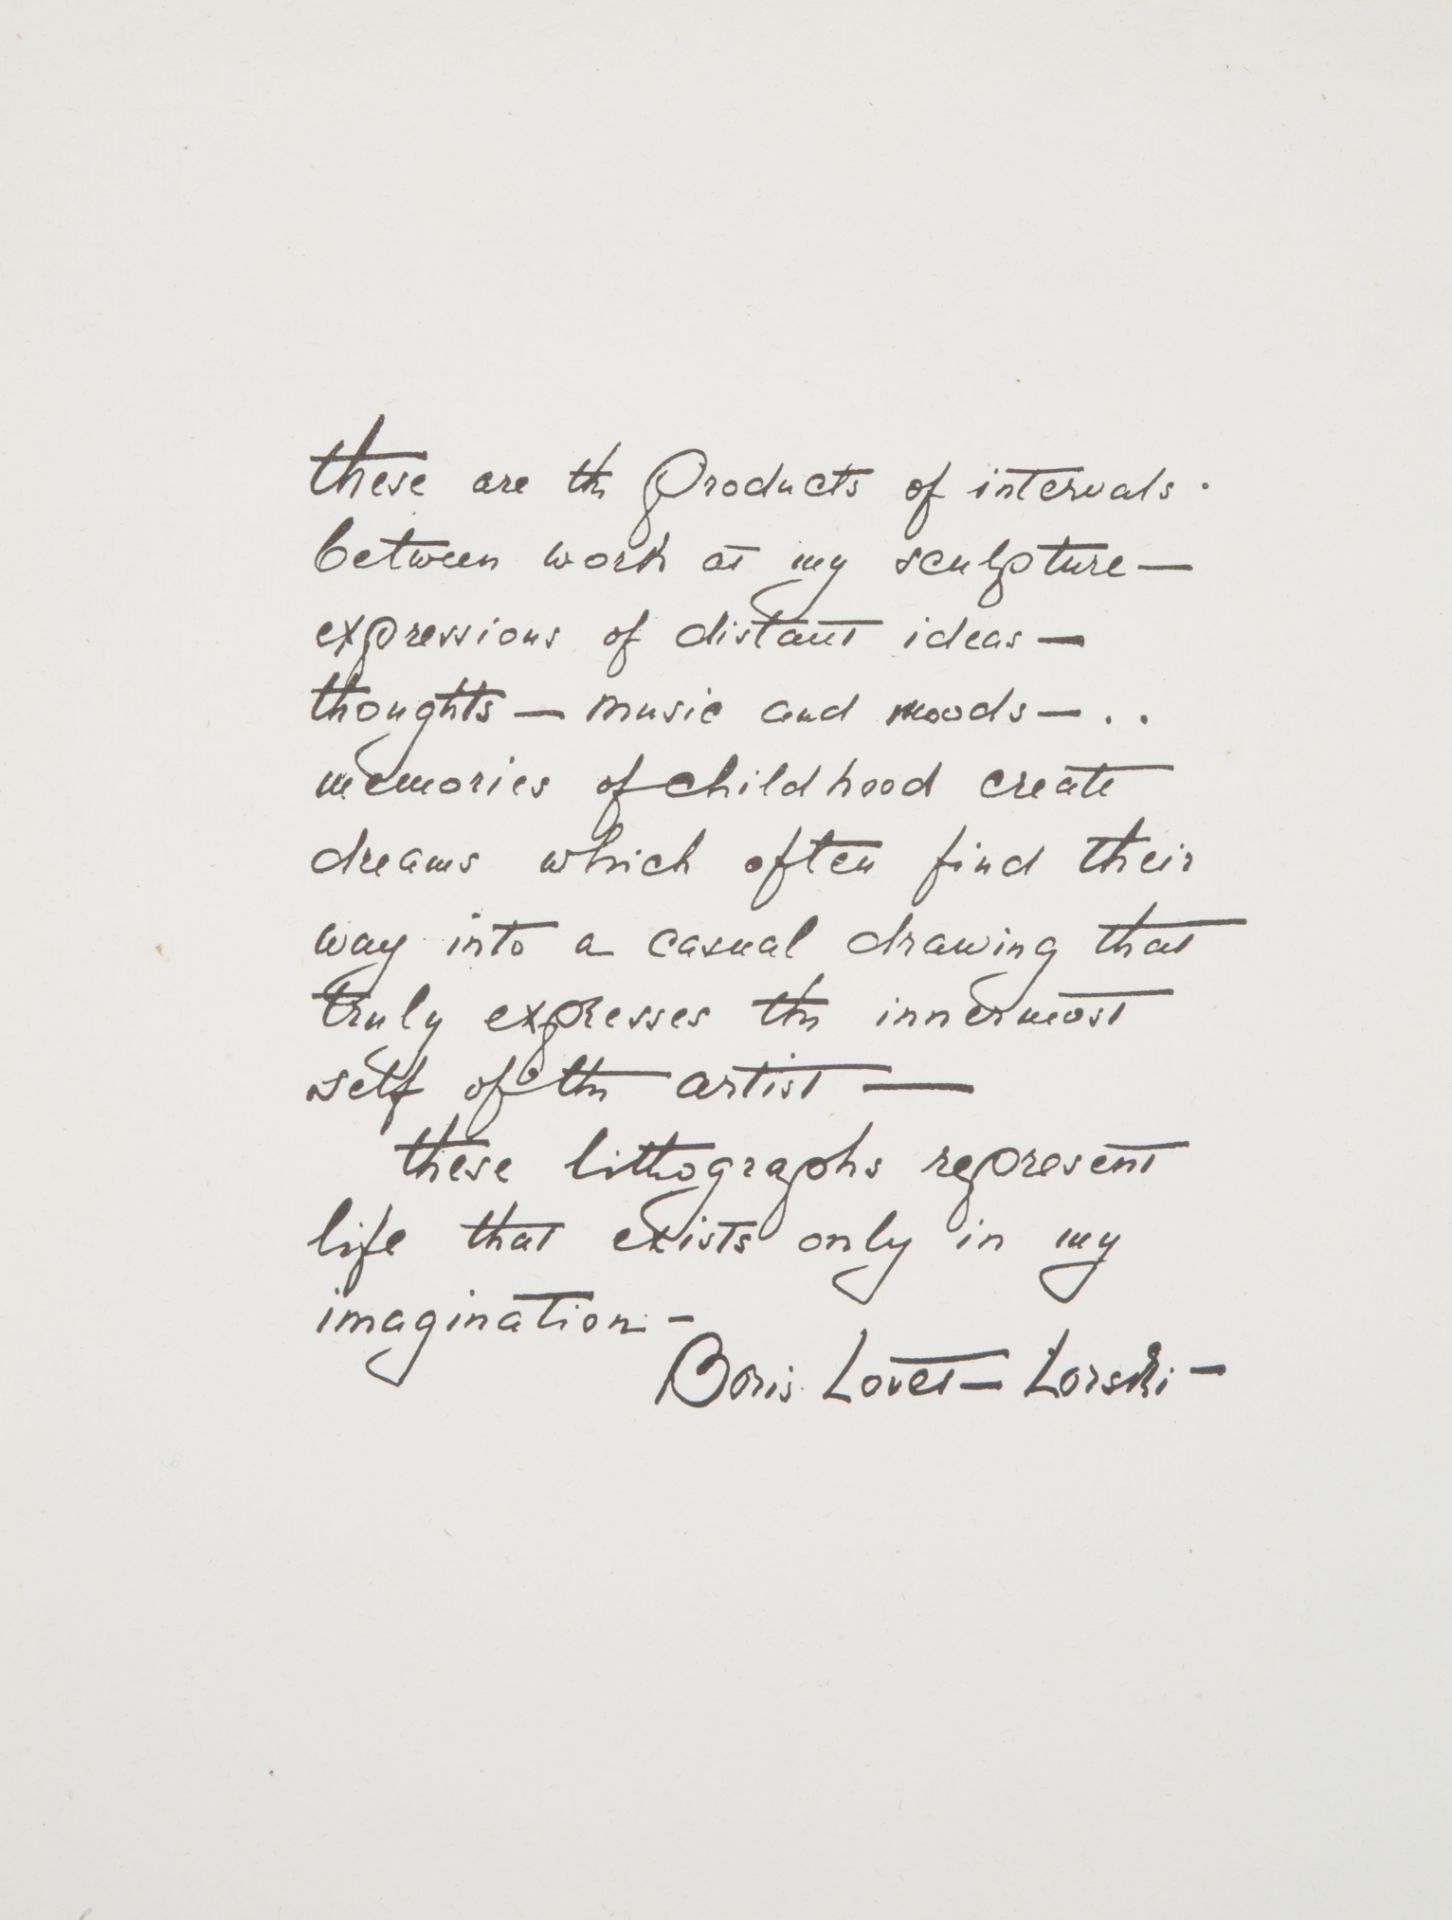 these are the Products of intervals .
between work at my sculpture —
expressions of distant ideas —
thoughts — music and moods — . .
memories of childhood create
dreams which often find their
way into a casual drawing that
truly expresses the innermost
self of the artist —
these lithographs represent
life that exists only in my
imagination. -
Boris Lovet - Lorski -